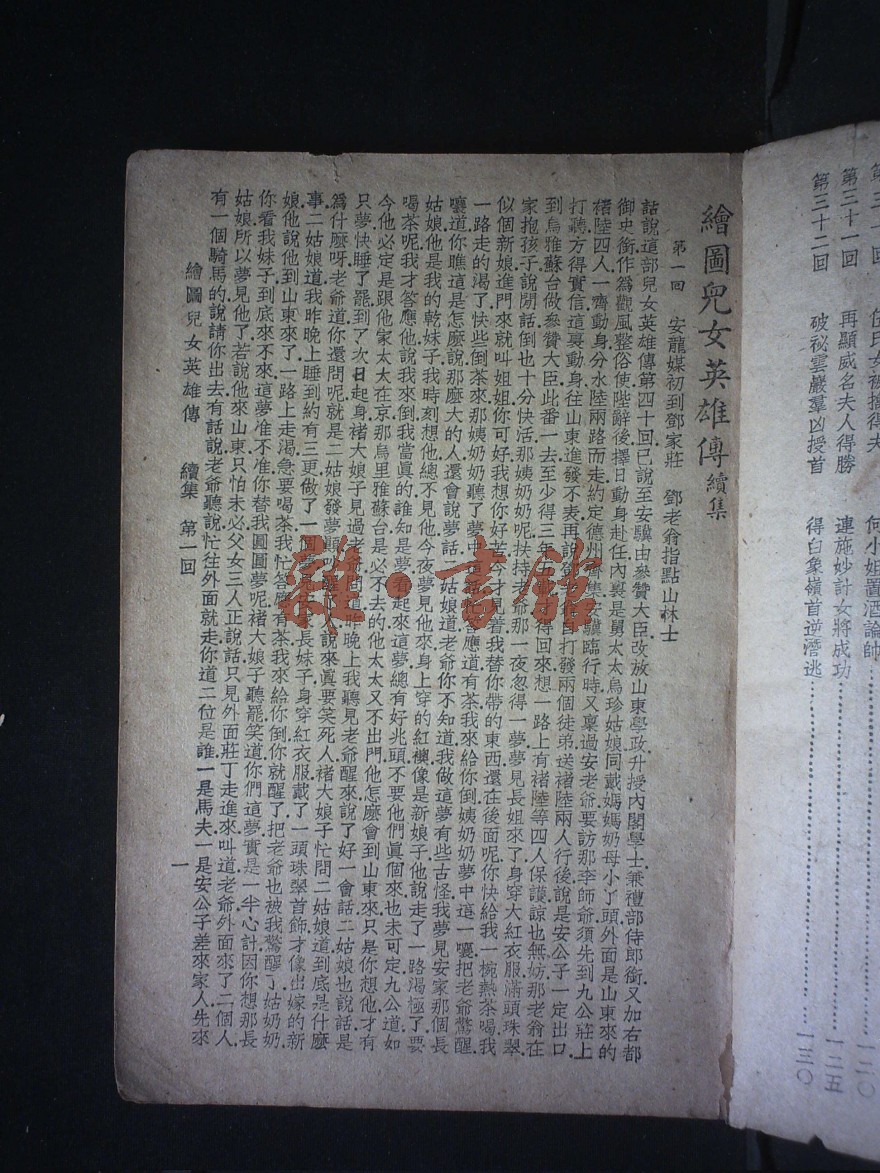 任氏女被擒得夫 何小姐置酒論帥………一二〇
第三十一回 再顯威名夫人得勝 連施妙計女將成功………一二五
第三十二回 破祕雲巖羣凶授首 得白象嶺首逆潛逃………一三〇
繪圖兒女英雄傳續集
第一回 安龍媒初到鄧家莊 鄧老翁指點山林士
話說這部兒女英雄傳第四十回已說至安驥由參贊大臣改放山東學政升授內閣學士兼禮部侍郎銜又加右都
御史銜作爲觀風整俗使陛辭後擇日動身赴任內裏是舅太太烏珍姑娘同戴媽媽奶母小丫頭外面是山東來的
褚陸四人一齊動身分水陸兩路而走約定德州齊集驥臨行時又稟過安老爺要訪那李師爺須先到九公莊上
打聽方得實信這裏動身往山東進發不表再說打發兩個徒弟送褚陸兩人行後說是安公子一定出口
到烏雅蘇台做參贊大臣此番一去至少得三年得回來想一路上有褚陸等四人保護諒也無妨那老翁在
家抱孩子說閒話倒也十分快活那姨奶奶呢扶持老爺那一夜忽得一夢夢見長姐來了身穿大紅衣服滿頭珠翠
似個新娘進門來就叫姐姐你可好我想你好苦今才見着我替你帶的東西還在後面呢你快給我一椀熱茶喝我
一路走的渴了快些倒茶來那姨奶奶聽了夢中答應道有茶我來給你倒姨奶奶夢中這一嚷把老爺驚醒
嚷道你瞧這是怎麼說那麼大的人還會說夢話姑娘道老爺你不知道我做這夢有些古怪我夢見安家那個長
姑娘他是我的乾妹子我時刻想他總不見他今夜夢見他來身上穿的紅襖像是新娘子他說走了一路渴極了要
喝茶呢我才答應他說我來倒我當眞的誰知是夢看起來這夢總有好兆頭不要他們眞個來也未可定九公道如
今他必定是跟他家太太在京那烏里雅蘇台是必不去的他太太又不出門他怎麼會到山東來只是你想他才有
只夢快睡了罷到了次日起身褚大娘子見過老爺問道昨晚上我聽見老爺醒來說了好一會話二姑娘也說話是
爲什麼呀老爺道你還問呢就是二姑娘發夢顚說來眞要笑死人褚大娘子忙問二姑娘道到底是什麼
事二姑娘道我昨晚上睡到約有三更做了一個夢長妹子身穿紅衣服戴了一頭珠翠首飾才像出嫁的新
娘他說他到山東來了一路上走渴急要喝茶我忙答應有茶我來給你倒你就醒了把老爺也被我驚醒了姑奶奶
你看我妹子到底來不來這夢准不准你替我圓圓夢呢褚大娘子聽罷笑道你們這夢實是一半心計因你想那長
姑娘所以夢見他了若說他來山東只怕未必父女三人正說話只見外面莊丁走進來叫道老爺外面來了二個人
有一個騎馬的說請你出去有話說老爺聽說忙往外面就走你道二位是誰一是馬夫一是安公子差來家人先來
繪圖兒女英雄傳 續集 第一回 一
雜·書館